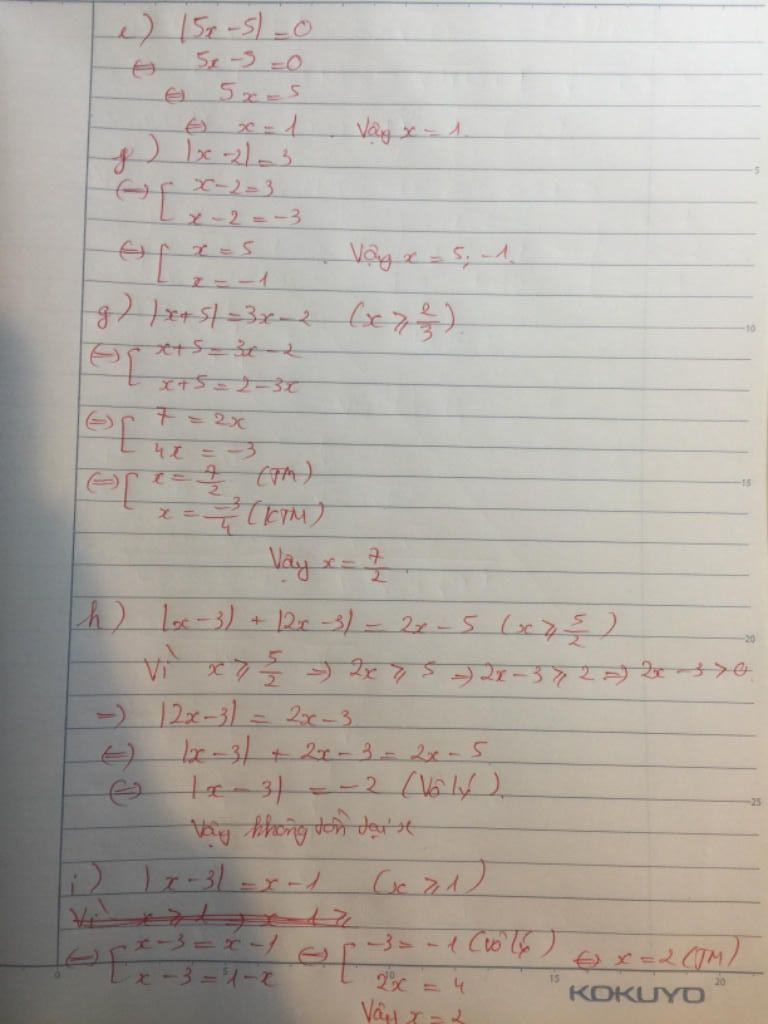 e) |5x-5| = 0
⇔ 5x-5 = 0
⇔ 5x = 5
⇔ x = 1. Vậy x = 1.
f) |x-2| = 3
⇔ [ x-2 = 3
x-2 = -3
⇔ [ x = 5
x = -1 . Vậy x = 5; -1.
g) |x+5| = 3x-2 (x ⩾ 2/3).
⇔ [ x+5 = 3x-2
x+5 = 2-3x
⇔ [ 7 = 2x
4x = -3
⇔ [ x = 7/2 (TM)
x = -3/4 (KTM)
Vậy x = 7/2.
h) |x-3| + |2x-3| = 2x-5 (x ⩾ 5/2)
Vì x ⩾ 5/2 ⇒ 2x ⩾ 5 ⇒ 2x-3 ⩾ 2 ⇒ 2x-3 > 0.
⇒ |2x-3| = 2x-3
⇔ |x-3| + 2x-3 = 2x-5
⇔ |x-3| = -2 (Vô lý).
Vậy không tồn tại x
i) |x-3| = x-1 (x ⩾ 1)
Vì x ⩾ 1 ⇒ x-1 ⩾
⇔ [ x-3 = x-1 ⇔ [ -3 = -1 (vô lý) ⇔ x = 2 (TM)
x-3 = 1-x 2x = 4
Vậy x = 2
KOKUYO
5
10
15
20
25
0
5
10
15
20